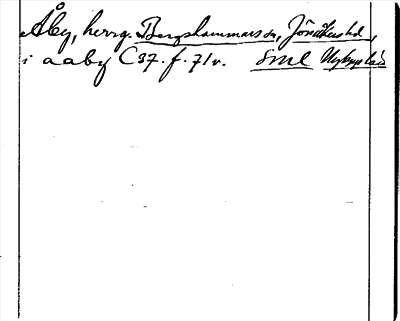 Åby, herrg. Bergshammars sn, Jönåkers hd,
i aaby C37. f. 71v. Sml Nyköp. län